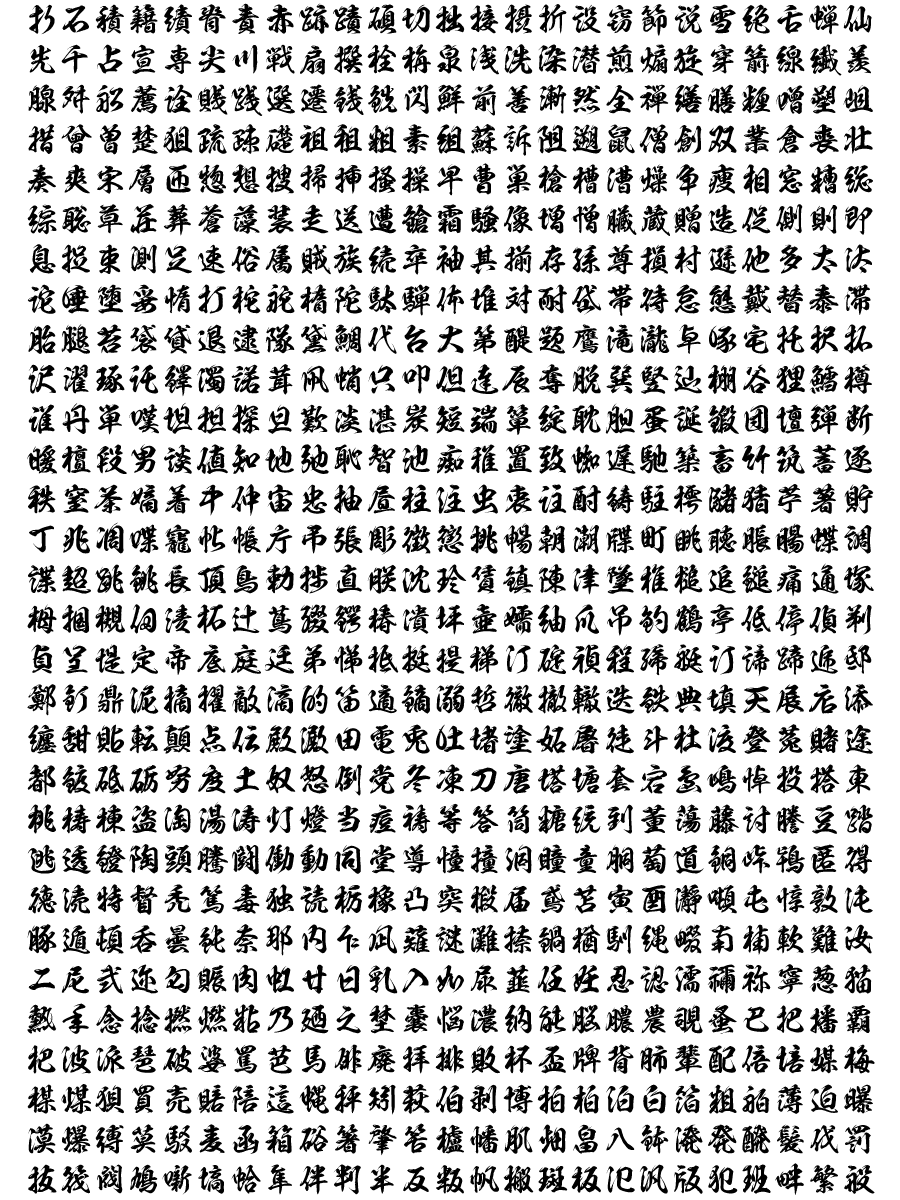 扚石積籍績脊責赤跡蹟碩切拙接摂折設窃節説雪絶舌蝉仙
先千占宣専尖川戦扇撰栓栴泉浅洗染潜煎煽旋穿箭線繊羨
腺舛船薦詮賎践選遷銭銑閃鮮前善漸然全禅繕膳糎噌塑岨
措曾曽楚狙疏疎礎祖租粗素組蘇訴阻遡鼠僧創双叢倉喪壮
奏爽宋層匝惣想捜掃挿掻操早曹巣槍槽漕燥争痩相窓糟総
綜聡草荘葬蒼藻装走送遭鎗霜騒像増憎臓蔵贈造促側則即
息捉束測足速俗属賊族続卒袖其揃存孫尊損村遜他多太汰
詑唾堕妥惰打柁舵楕陀駄騨体堆対耐岱帯待怠態戴替泰滞
胎腿苔袋貸退逮隊黛鯛代台大第醍題鷹滝瀧卓啄宅托択拓
沢濯琢託鐸濁諾茸凧蛸只叩但達辰奪脱巽竪辿棚谷狸鱈樽
誰丹単嘆坦担探旦歎淡湛炭短端箪綻耽胆蛋誕鍛団壇弾断
暖檀段男談値知地弛恥智池痴稚置致蜘遅馳築畜竹筑蓄逐
秩窒茶嫡着中仲宙忠抽昼柱注虫衷註酎鋳駐樗瀦猪苧著貯
丁兆凋喋寵帖帳庁弔張彫徴懲挑暢朝潮牒町眺聴脹腸蝶調
諜超跳銚長頂鳥勅捗直朕沈珍賃鎮陳津墜椎槌追鎚痛通塚
栂掴槻佃漬柘辻蔦綴鍔椿潰坪壷嬬紬爪吊釣鶴亭低停偵剃
貞呈堤定帝底庭廷弟悌抵挺提梯汀碇禎程締艇訂諦蹄逓邸
鄭釘鼎泥摘擢敵滴的笛適鏑溺哲徹撤轍迭鉄典填天展店添
纏甜貼転顛点伝殿澱田電兎吐堵塗妬屠徒斗杜渡登菟賭途
都鍍砥砺努度土奴怒倒党冬凍刀唐塔塘套宕島嶋悼投搭東
桃梼棟盗淘湯涛灯燈当痘祷等答筒糖統到董蕩藤討謄豆踏
逃透鐙陶頭騰闘働動同堂導憧撞洞瞳童胴萄道銅峠鴇匿得
徳涜特督禿篤毒独読栃橡凸突椴届鳶苫寅酉瀞噸屯惇敦沌
豚遁頓呑曇鈍奈那内乍凪薙謎灘捺鍋楢馴縄畷南楠軟難汝
二尼弐迩匂賑肉虹廿日乳入如尿韮任妊忍認濡禰祢寧葱猫
熱年念捻撚燃粘乃廼之埜嚢悩濃納能脳膿農覗蚤巴把播覇
杷波派琶破婆罵芭馬俳廃拝排敗杯盃牌背肺輩配倍培媒梅
楳煤狽買売賠陪這蝿秤矧萩伯剥博拍柏泊白箔粕舶薄迫曝
漠爆縛莫駁麦函箱硲箸肇筈櫨幡肌畑畠八鉢溌発醗髪伐罰
抜筏閥鳩噺塙蛤隼伴判半反叛帆搬斑板氾汎版犯班畔繁般